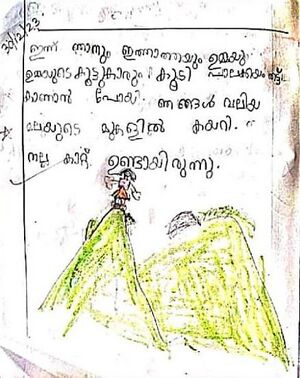 30/12/23
ഇന്ന് ഞാനും ഇത്താത്തയും ഉമ്മയും
ഉമ്മയുടെ കൂട്ടുകാരും കൂടി പാലക്കയം തട്ട്
കാണാൻ പോയി ഞങ്ങൾ വലിയ
മലയുടെ മുകളിൽ കയറി.
നല്ല കാറ്റ് ഉണ്ടായിരുന്നു.